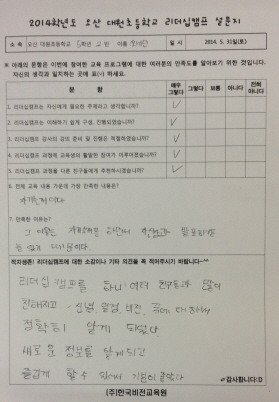 2014학년도 오산 대원초등학교 리더십캠프 설문지
소 속 오산 대원초등학교 5학년 2반 이름 일 시 2014. 5. 31(토)
※ 아래의 문항은 이번에 참여한 교육 프로그램에 대한 여러분의 만족도를 알아보기 위한 것입니다.
자신의 생각과 일치하는 곳에 표(○) 하세요.
문 항 매우 그렇다 그렇다 보통 아니다 전혀 아니다
1. 리더십캠프는 자신에게 필요한 주제라고 생각합니까? ✓
2. 리더십캠프는 이해하기 쉽게 구성, 진행되었습니까? ✓
3. 리더십캠프 강사의 강의 준비 및 진행은 적절하였습니까? ✓
4. 리더십캠프 과정에 교육생의 활발한 참여가 이루어졌습니까? ✓
5. 리더십캠프 과정을 다른 친구들에게 추천하시겠습니까? ✓
6. 전체 교육 내용 가운데 가장 만족한 내용은?
7. 만족한 이유는?
그 이유는
때문이다
적자생존! 리더십캠프에 대한 소감이나 기타 의견을 꼭 적어주시기 바랍니다~^^
리더십 캠프를 하니 여러 친구들과 많이
친해지고 신념, 열정, 비전, 꿈에 대해서
정확히 알게 되었다.
새로운 정보를 알게되고
즐겁게 할 수 있어서 기분이 좋았다
감사합니다:D
(주)한국비전교육원